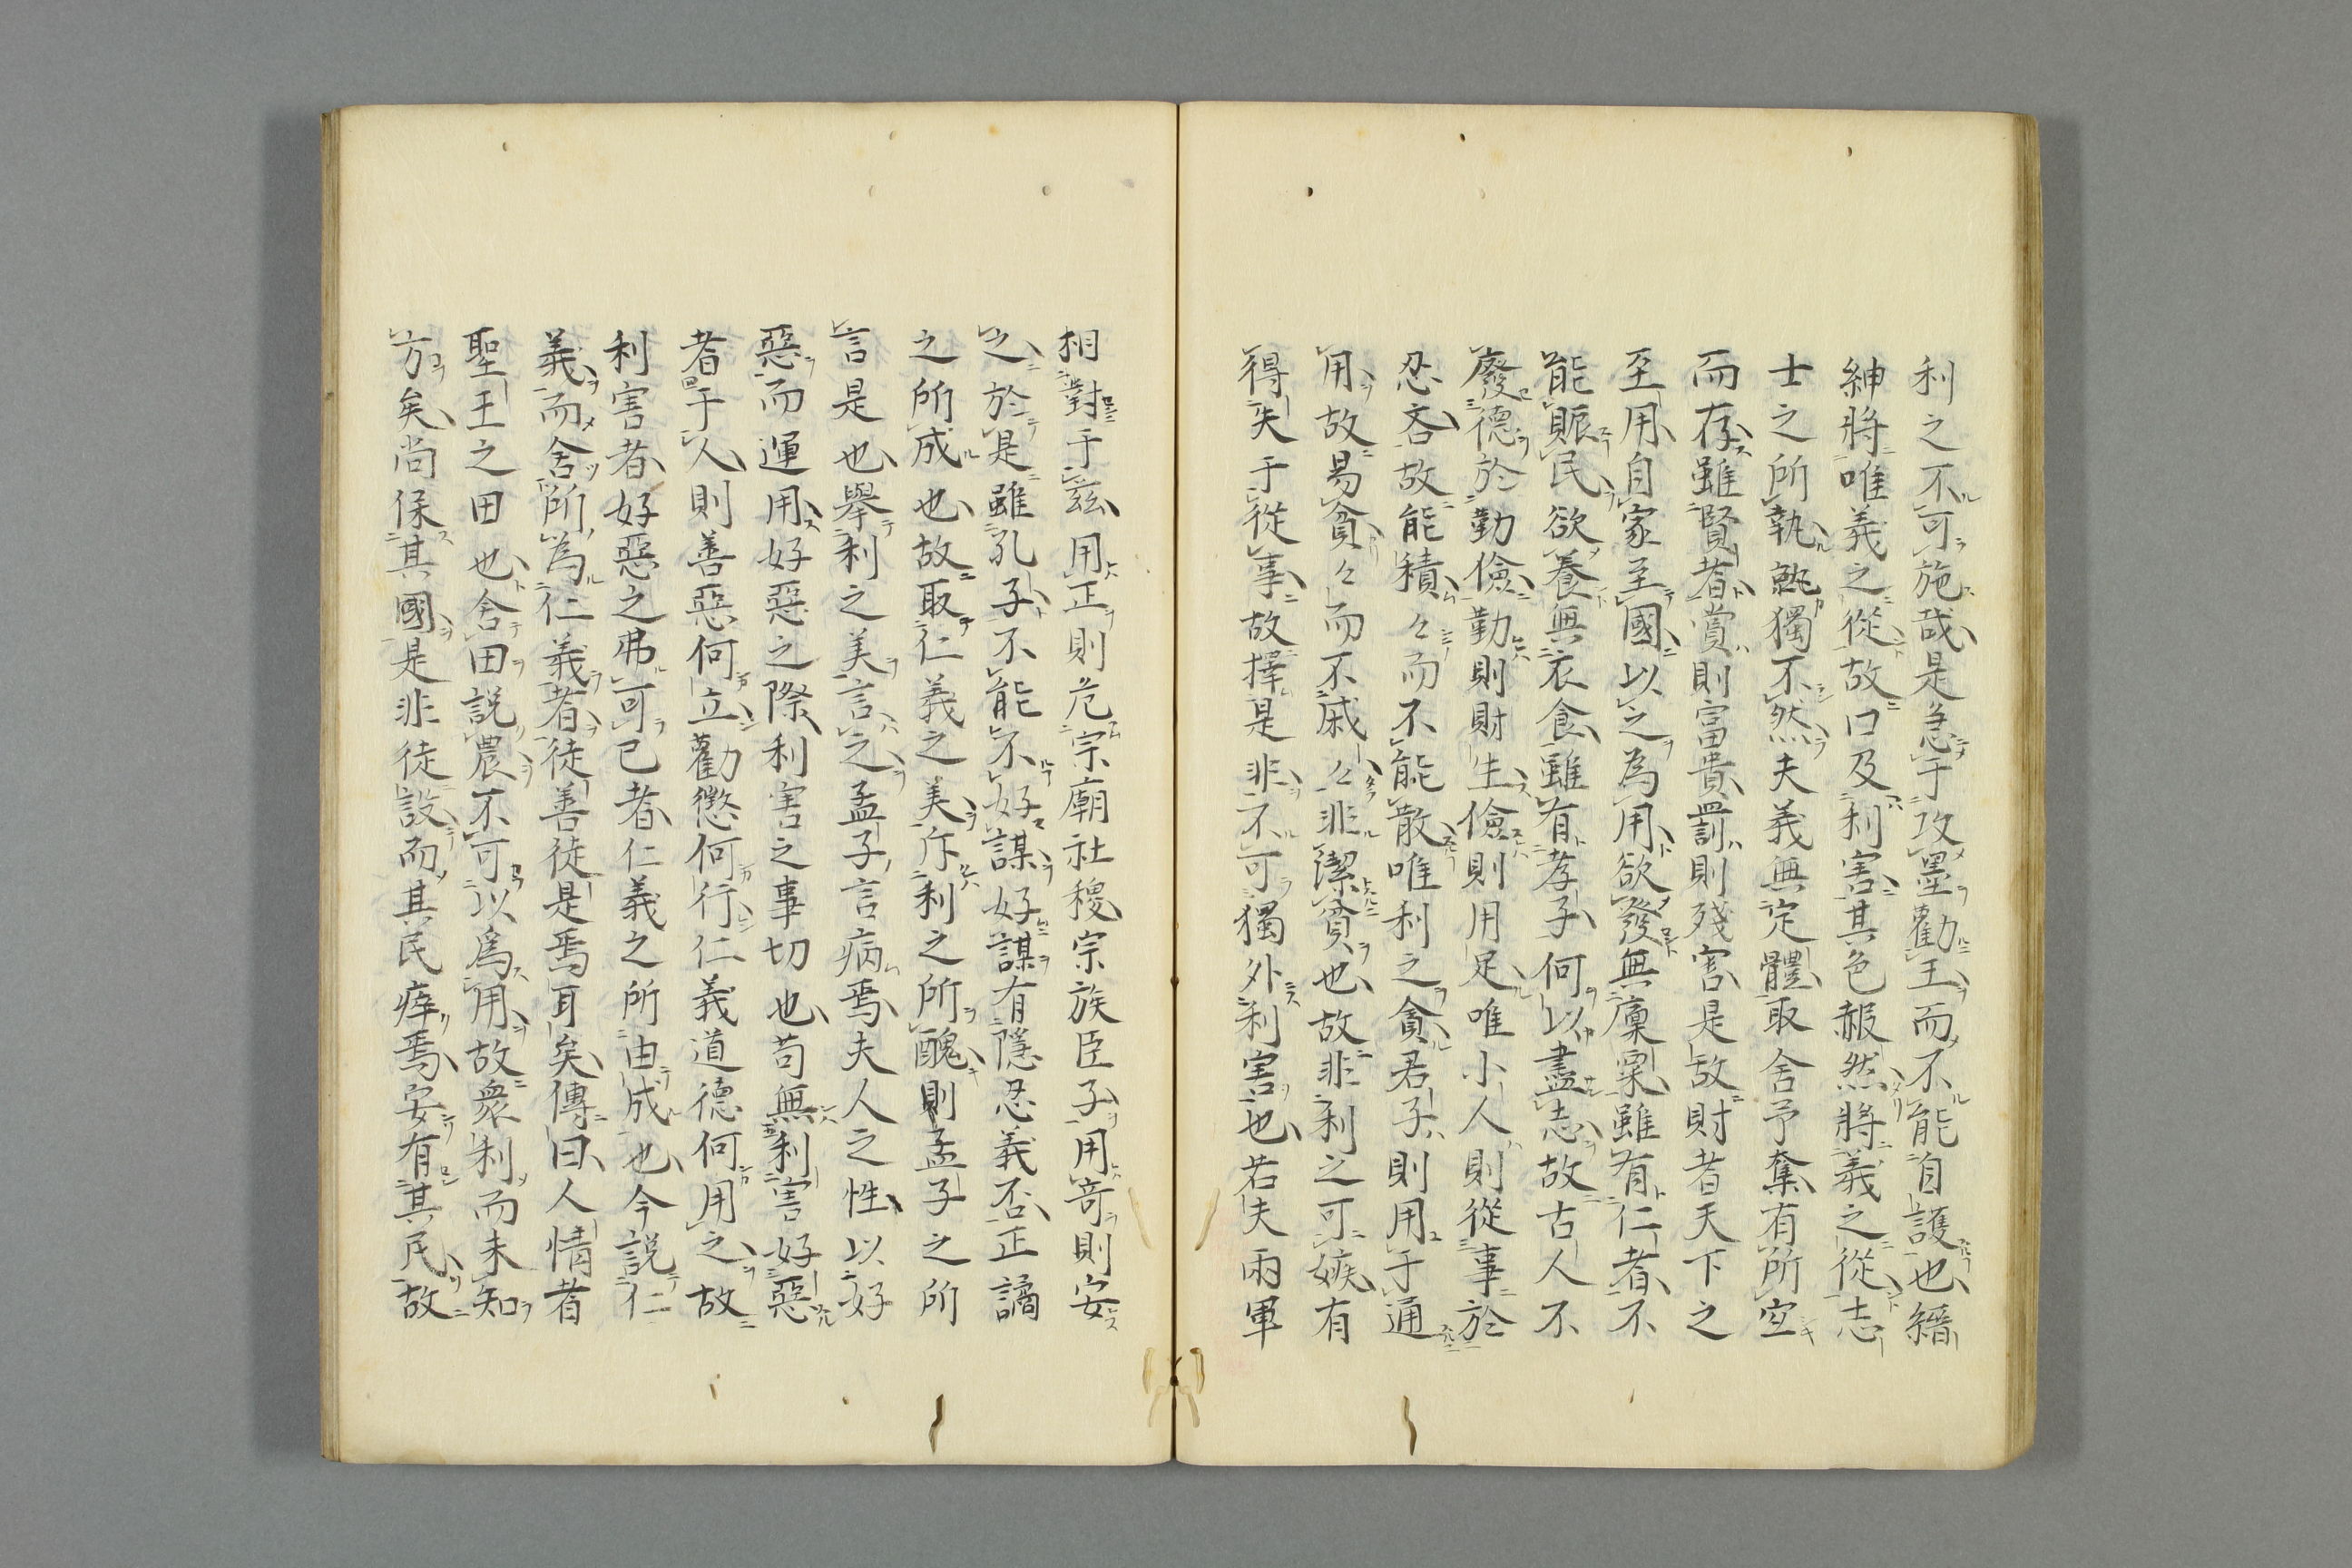 利之不可施哉是急于攻墨勸王而不能自護也縉
紳將唯義之從故口及利害其色赧然將義之從志
士之所執孰獨不然夫義無定體取舍予奪有所空
而存雖賢者賞則富貴罰則殘害是故財者天下之
至用自家至國以之為用欲發無廩粟雖有仁者不
能賑民欲養無衣食雖有孝子何以盡志故古人不
廢德於勤儉勤則財生儉則用足唯小人則從事於
忍吝故能積々而不能散唯利之貪君子則用于通
用故易貪々而不戚々非潔貧也故非利之可嫉有
得失于從事故擇是非不可獨外利害也若夫兩軍
相對于茲用正則危宗廟社稷宗族臣子用奇則安
之於是雖孔子不能不好謀好謀有隱忍義否正譎
之所成也故取仁義之美斥利之所醜則孟子之所
言是也舉利之美言之孟子言病焉夫人之性以好
惡而運用好惡之際利害之事切也苟無利害好惡
者于人則善惡何立勸懲何行仁義道德何用之故
利害者好惡之弗可已者仁義之所由成也今説仁
義而舍所為仁義者徒善徒是焉耳矣傳曰人情者
聖王之田也舍田説農不可以為用故衆利而未知
方矣尚保其國是非徒設而其民瘁焉安有其民故